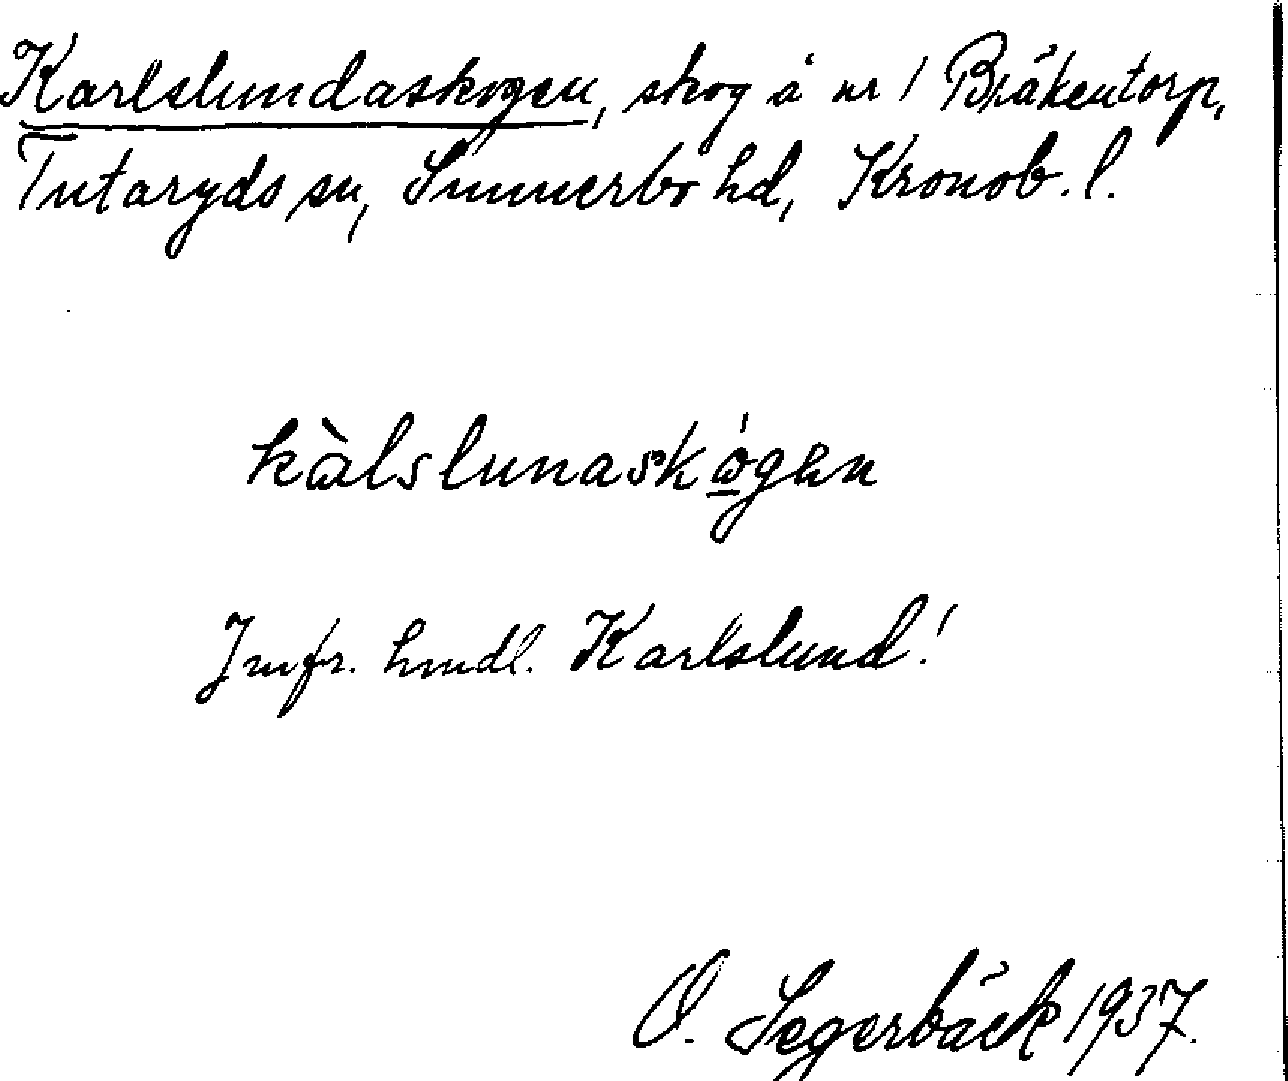 Karlslundaskogen, skog å nr 1 Bräkentorp,
Tutaryds sn, Sunnerbo hd, Kronob. l.
kàlslunaskógen
Jmfr. hmdl. Karlslund!
O. Segerbäck 1937.